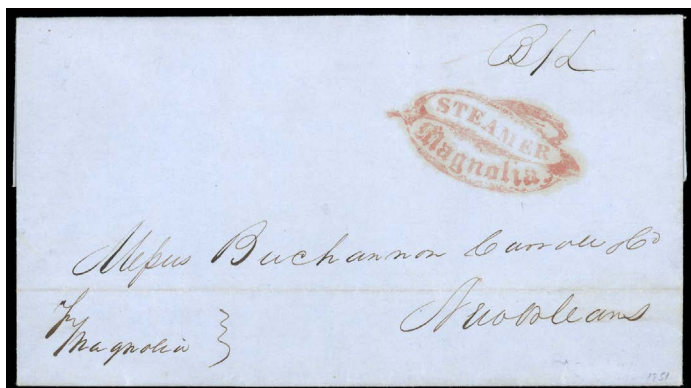 B/L
STEAMER
Magnolia
Messrs Buchannon Carroll & Co
New Orleans
Pr
Magnolia